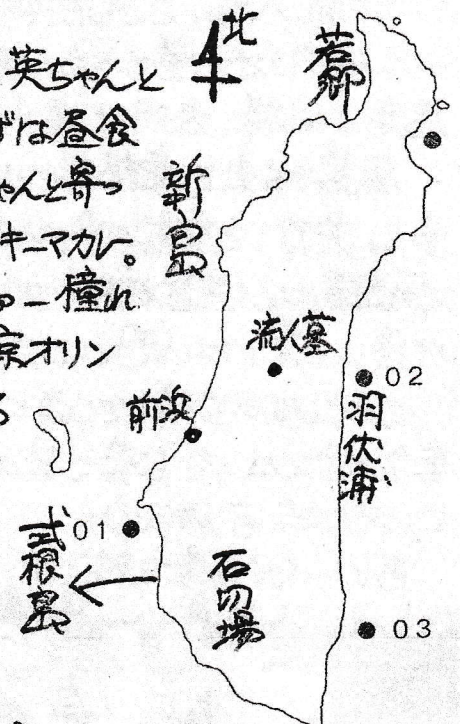 英ちゃんと
ずは昼食
ゃんと寄っ
キーマカレー。
ゅー憧れ
京オリン
る
北
若郷
新島
流人墓
02
羽伏浦
前浜
01
式根島
石切場
03